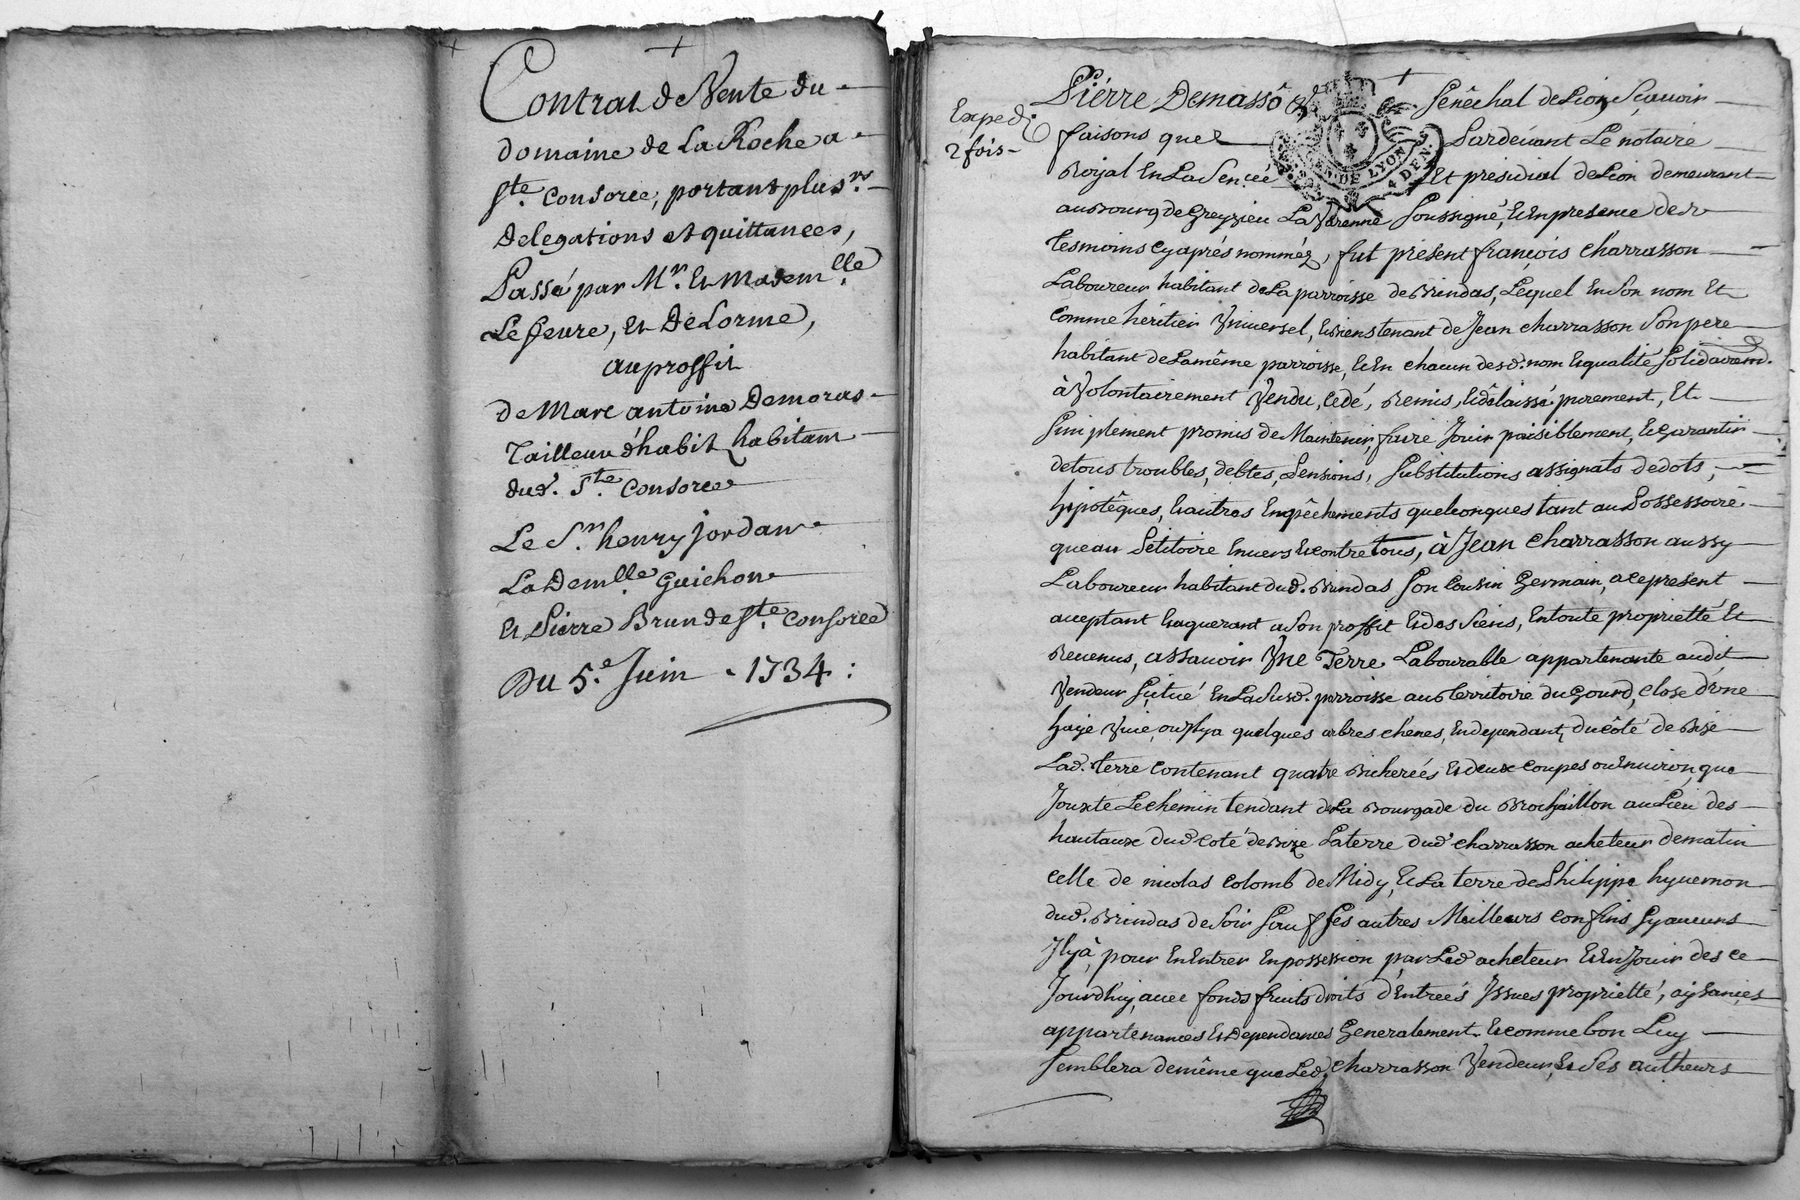 Contrat de Vente du
domaine de La Roche a
Ste. Consorce, portant plusrs.
Delegations et quittances,
Passé par Mr. Et Mademlle.
Le feure, Et De Lorme,
au proffit
de Marc antoine Demoras
Tailleur d'habit habitant
dud. Ste. Consorce
Le Sr. henry jordan
La Demlle. Guichon
Et Pierre Brun de Ste. Consorce
Du 5.e Juin 1734 :
Exped.
2 fois
Pierre Demasso Senêchal de Lion, Sçavoir
faisons que Pardevant Le notaire
Royal En La Sencée Et présidial de Lion demeurant
au Bourg de Greyzieu La Varenne Soussigné, Et En presence des
tesmoins cy aprés nomméz, fut présent françois Charrasson
Laboureur habitant de La parroisse de Brindas, Lequel En Son nom Et
Comme héritier Vniversel, Et bienstenant de Jean charrasson Son pere
habitant de La même parroisse, Et En chacun desd. nom Et qualité Solidairemt.
à Volontairement Vendu, Cedé, Remis, Et délaissé purement, Et
Simplement promis de Maintenir, faire Jouir paisiblement, Et Garantir
de tous troubles, debtes, Pensions, Substitutions assignats de dots,
hipotêques, Et autres Empêchements quelconques tant au Possessoire
que au Pétitoire Envers Et contre tous, à Jean Charrasson aussy
Laboureur habitant dud. Brindas Son Cousin Germain, a ce present
aceptant Et aquerant a Son proffit Et des Siens, En toute proprietté Et
Revenus, assavoir Vne Terre Labourable appartenante audit
Vendeur Scitué En La Susd. parroisse au Territoire du Gourd, close d'vne
haÿe Vive, ou Jl y a quelques arbres chênes, En dependant, du côté de Bize
Lad. terre contenant quatre Bicherées Et deux coupes ou Environ, que
Jouxte Le chemin tendant de La Bourgade du Brochaillon au Lieu des
hautaux dud coté de Bize La terre dud. charrasson acheteur de matin
celle de nicolas Colomb de Midy, Et La terre de Philippe hyvernon
dud. Brindas de Soir Sauf Ses autres Meilleurs confins Sy aucuns
Jl y à, pour En Entrer En possession par Led acheteur Et En Jouir des ce
Jourdhuy, avec fonds fruits droits d'Entreés Jssues proprietté, aÿsances
appartenances Et Dependances Generalement Et comme bon Luy
Semblera de même que Led. Charrasson Vendeur, Et Ses autheurs
GEN. DE LYON
4 DEN.